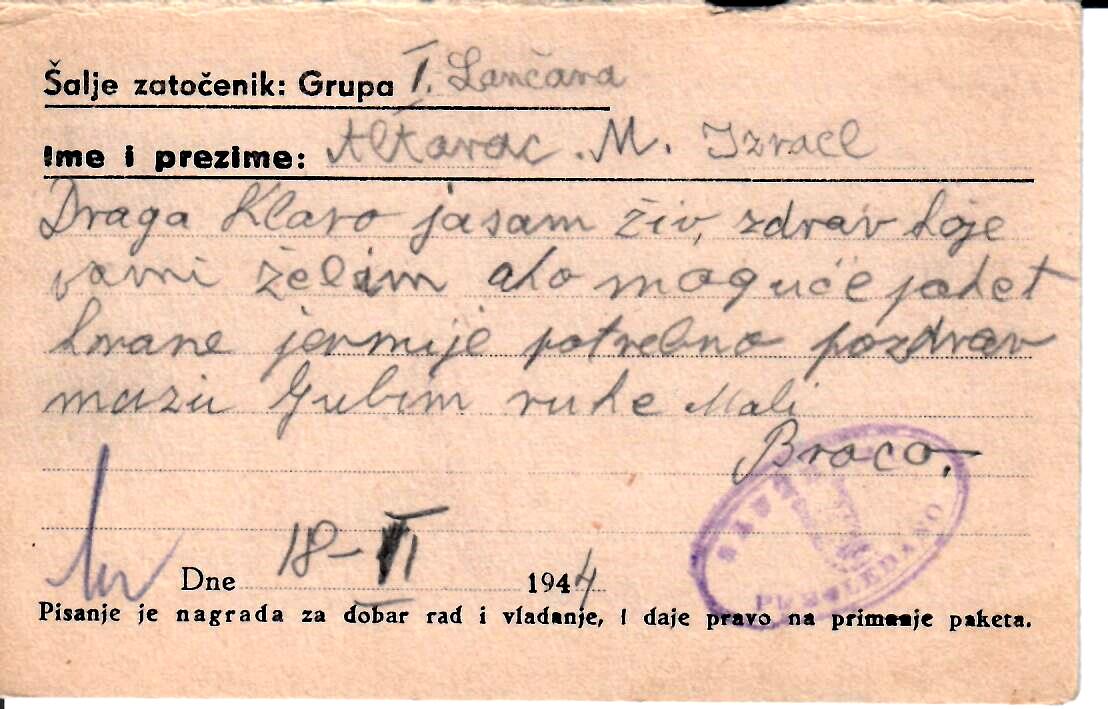 Šalje zatočenik: Grupa I. Lančara
Ime i prezime: Altarac. M. Izrael
Draga Klaro jasam živ, zdrav koje
vami želim ako moguće paket
hrane jermije potrebno pozdrav
muzu ljubim ruke Mali
Braco,
Dne 18-VI 1944
PREGLEDANO
Pisanje je nagrada za dobar rad i vladanje, i daje pravo na primanje paketa.